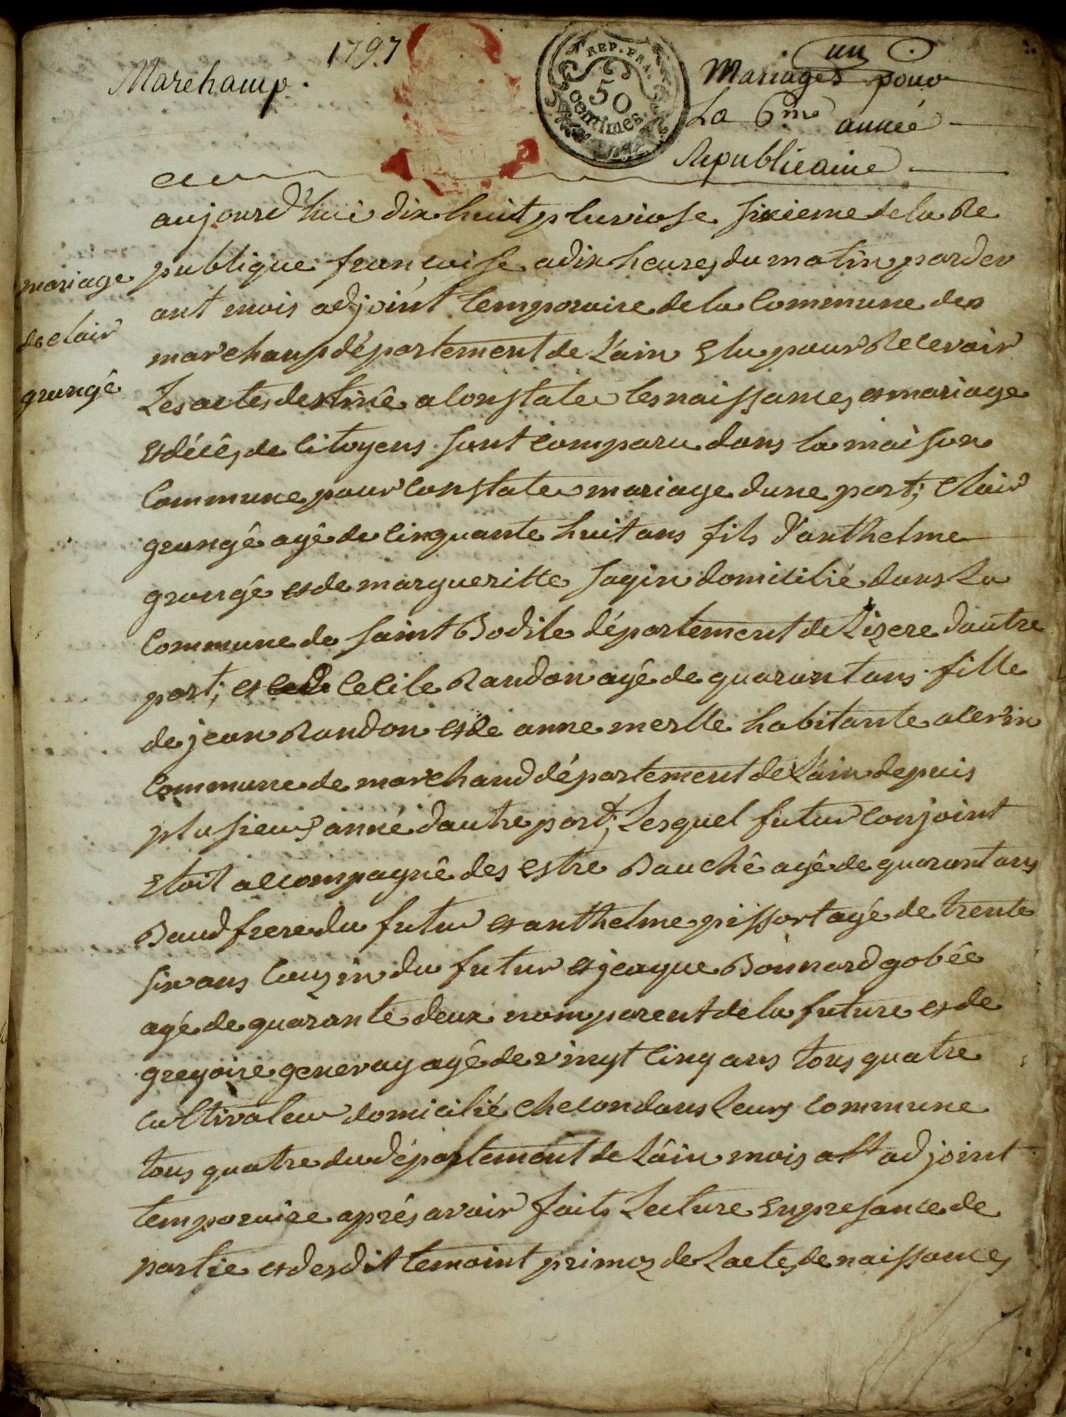 1797
Marchamp.
REP. FRA.
50
centimes
un
Mariages pour
La 6me année
Republicaine
mariage
de clair
grangê
aujourd'hui dix huit pluviose sixieme de la Re
publique françoise a dix heures du matin par dev
ant mois adjoint temporaire de la Commune de
marchamp département de L'ain Elu pour Recevoir
Les actes destinê a Constate les naissances et mariage
et décês de Citoyens sont comparu dans la maison
Commune pour Constate mariage dune part; Clair
grangê agê de Cinquante huit ans fils d'anthelme
grangê et de margueritte sagin domicilié dans La
Commune de saint Bodile département de Lizere dautre
part; et Cecile Randon agê de quarant ans fille
de jean Randon et de anne merlle habitante a Cerin
Commune de marchand département de L'ain depuis
plusieur année dautre part; Lesquel futur Conjoint
Etoit accompagnê des estre Bauchê agê de quarant ans
Baud frere du futur et anthelme pissort agé de trente
six ans Couzin du futur et jeaque Bonnard gobée
agé de quarante deux nom parent de la future et de
gregoire genevay agê de vingt Cinq ans tous quatre
Cultivateur domicilié checon dans Leurs Commune
tous quatre du département de L'âin mois adjoint
temporaire après avoir faite Lecture En presance de
partie et des dit temoint primoz de Lacte de naissances